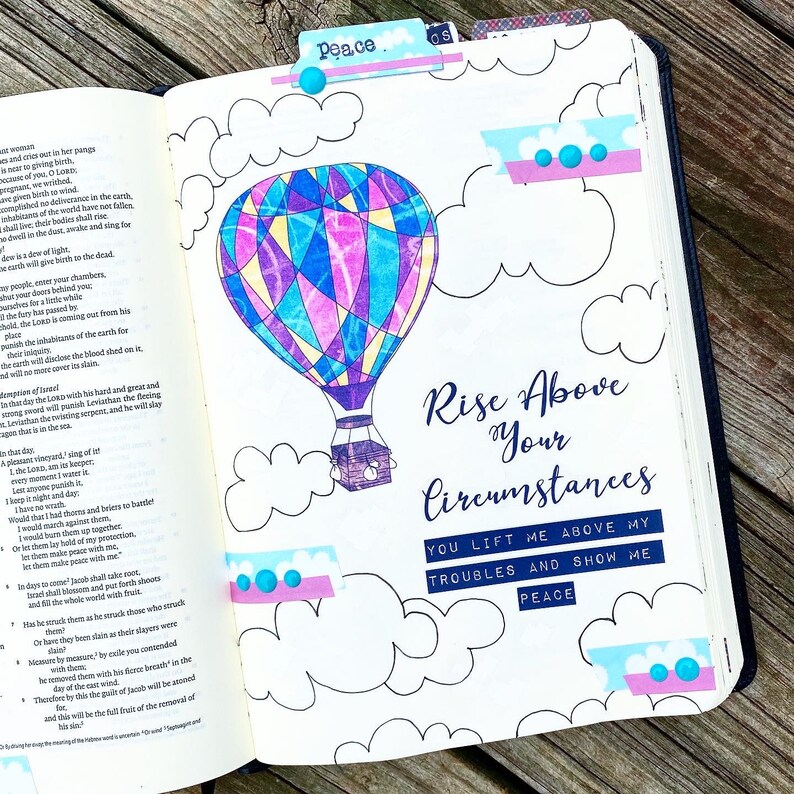 woman
and cries out in her pangs
is near to giving birth,
because of you, O LORD;
pregnant, we writhed,
have given birth to wind.
accomplished no deliverance in the earth,
inhabitants of the world have not fallen.
shall live; their bodies shall rise.
who dwell in the dust, awake and sing for
dew is a dew of light,
the earth will give birth to the dead.
my people, enter your chambers,
shut your doors behind you;
yourselves for a little while
the fury has passed by.
behold, the LORD is coming out from his
place
punish the inhabitants of the earth for
their iniquity,
the earth will disclose the blood shed on it,
and will no more cover its slain.
Redemption of Israel
In that day the LORD with his hard and great and
strong sword will punish Leviathan the fleeing
Leviathan the twisting serpent, and he will slay
dragon that is in the sea.
In that day,
A pleasant vineyard,¹ sing of it!
I, the LORD, am its keeper;
every moment I water it.
Lest anyone punish it,
I keep it night and day;
I have no wrath.
Would that I had thorns and briers to battle!
I would march against them,
I would burn them up together.
5 Or let them lay hold of my protection,
let them make peace with me,
let them make peace with me."
6 In days to come² Jacob shall take root,
Israel shall blossom and put forth shoots
and fill the whole world with fruit.
7 Has he struck them as he struck those who struck
them?
Or have they been slain as their slayers were
slain?
8 Measure by measure,³ by exile you contended
with them;
he removed them with his fierce breath⁴ in the
day of the east wind.
9 Therefore by this the guilt of Jacob will be atoned
for,
and this will be the full fruit of the removal of
his sin:⁵
the meaning of the Hebrew word is uncertain ⁴ Or wind ⁵ Septuagint and
peace
OS
Rise Above
Your
Circumstances
YOU LIFT ME ABOVE MY
TROUBLES AND SHOW ME
PEACE